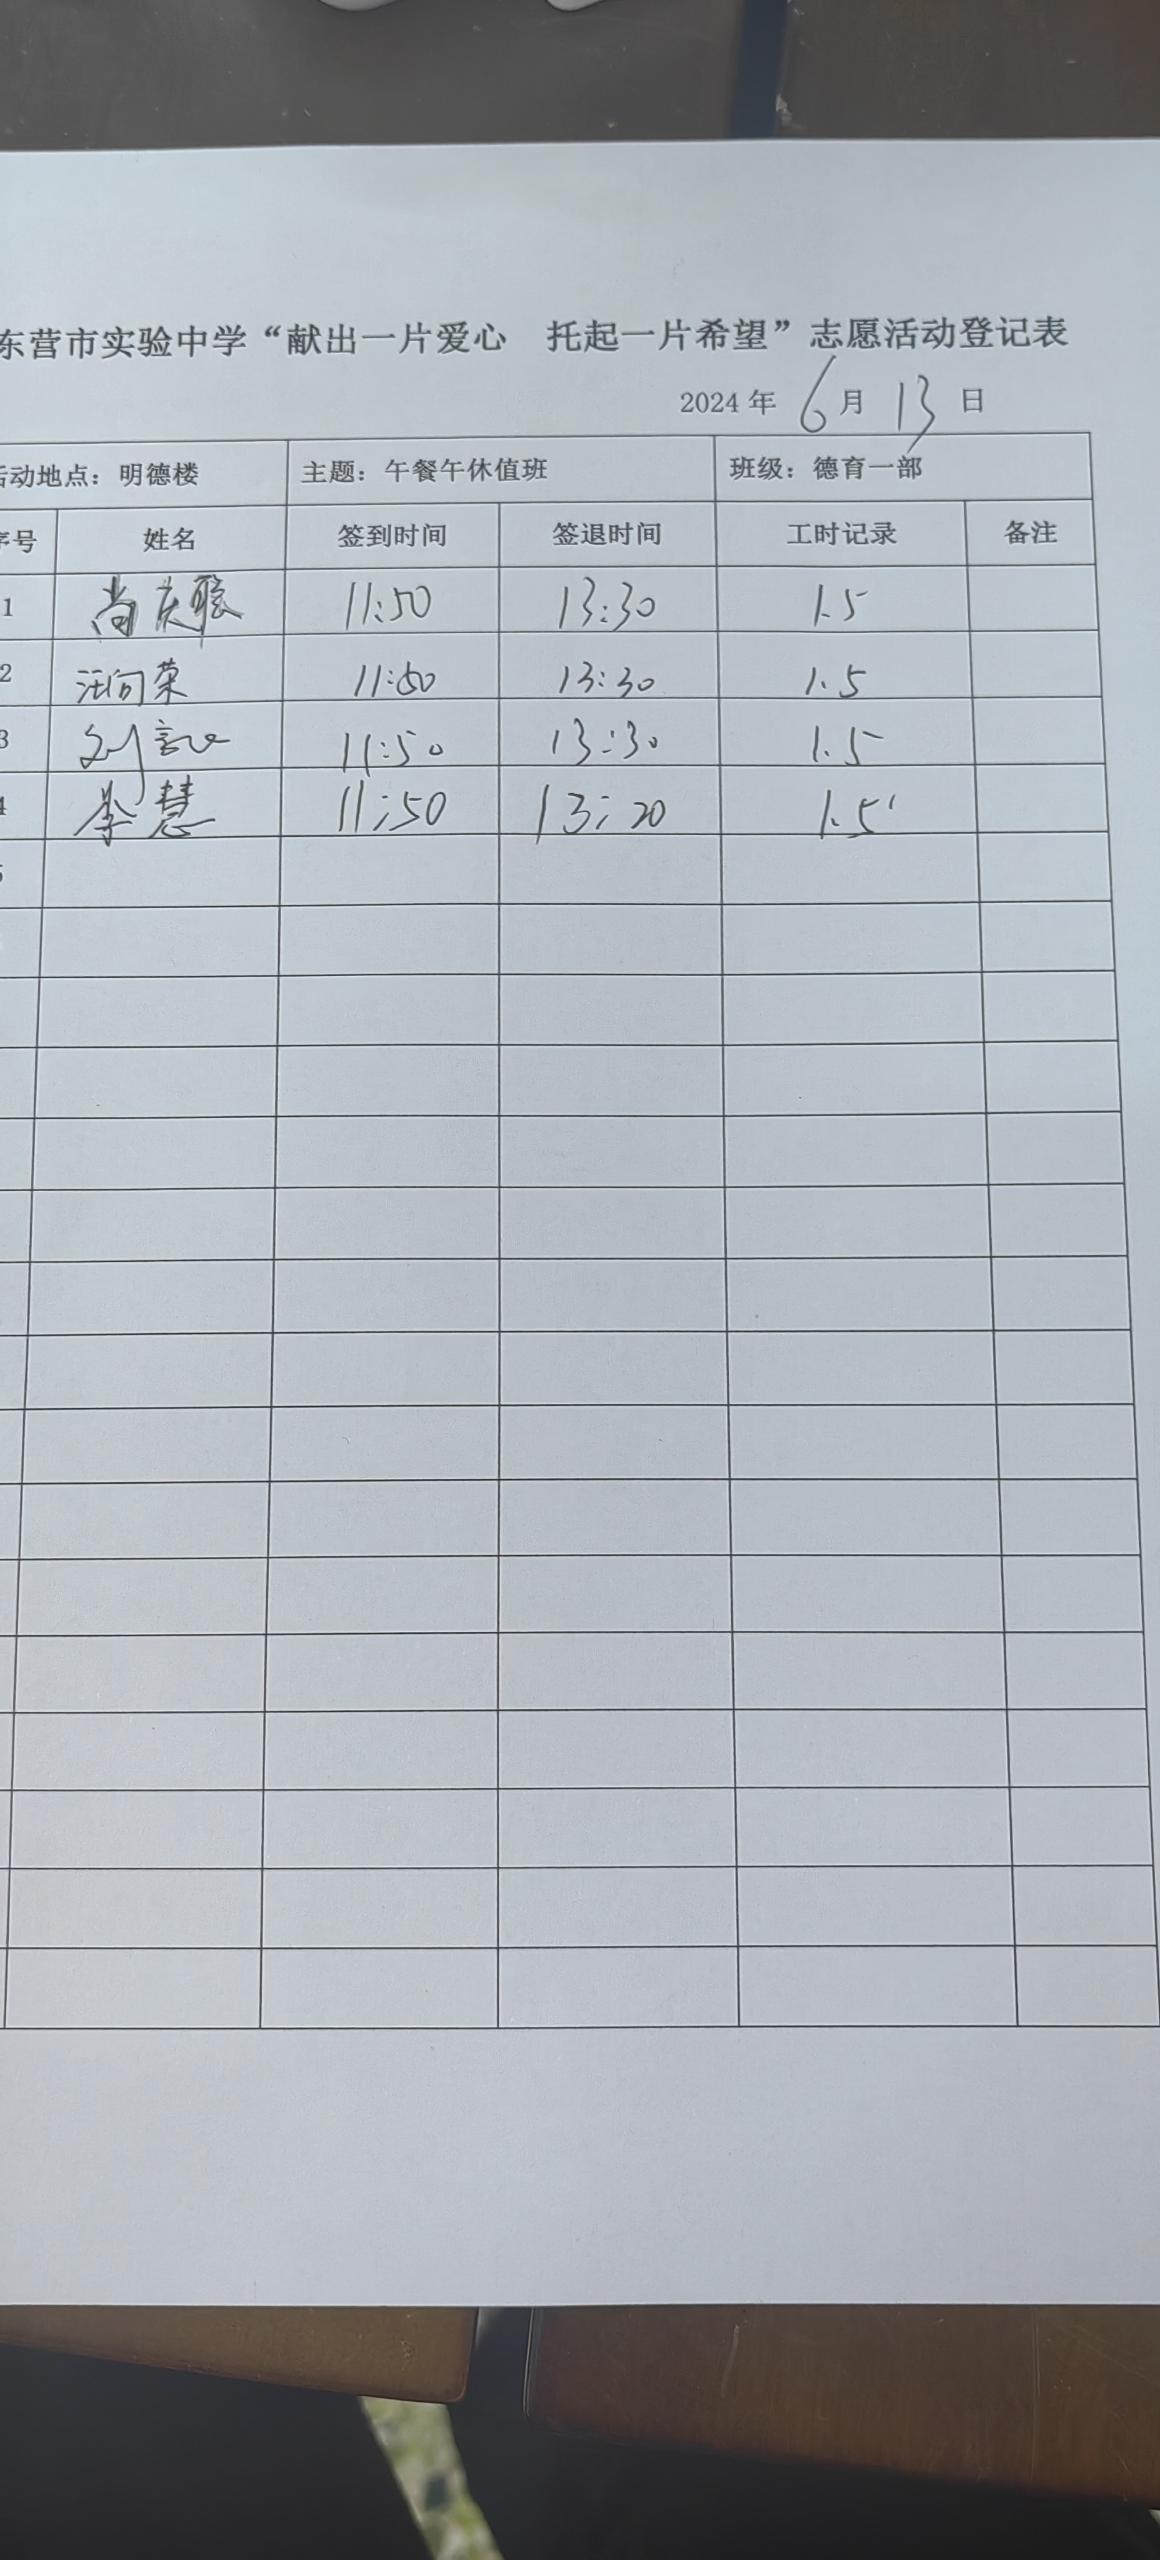 东营市实验中学“献出一片爱心 托起一片希望”志愿活动登记表
2024 年 6 月 13 日
活动地点：明德楼 主题：午餐午休值班 班级：德育一部
序号 姓名 签到时间 签退时间 工时记录 备注
1 尚庆聪 11:50 13:30 1.5
2 汪向荣 11:50 13:30 1.5
3 刘 11:50 13:30 1.5
4 李慧 11:50 13:20 1.5
5